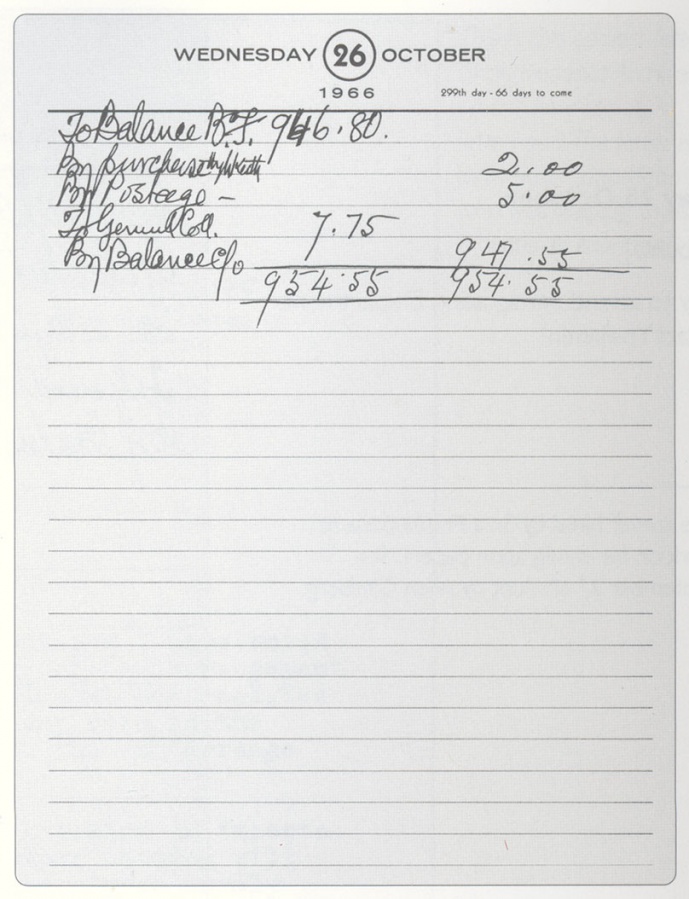 WEDNESDAY 26 OCTOBER
1966 299th day - 66 days to come
To Balance B.F. 946.80.
By purchase 2.00
By Postage - 5.00
To Genural Coll. 7.75
By Balance c/o 947.55
954.55 954.55